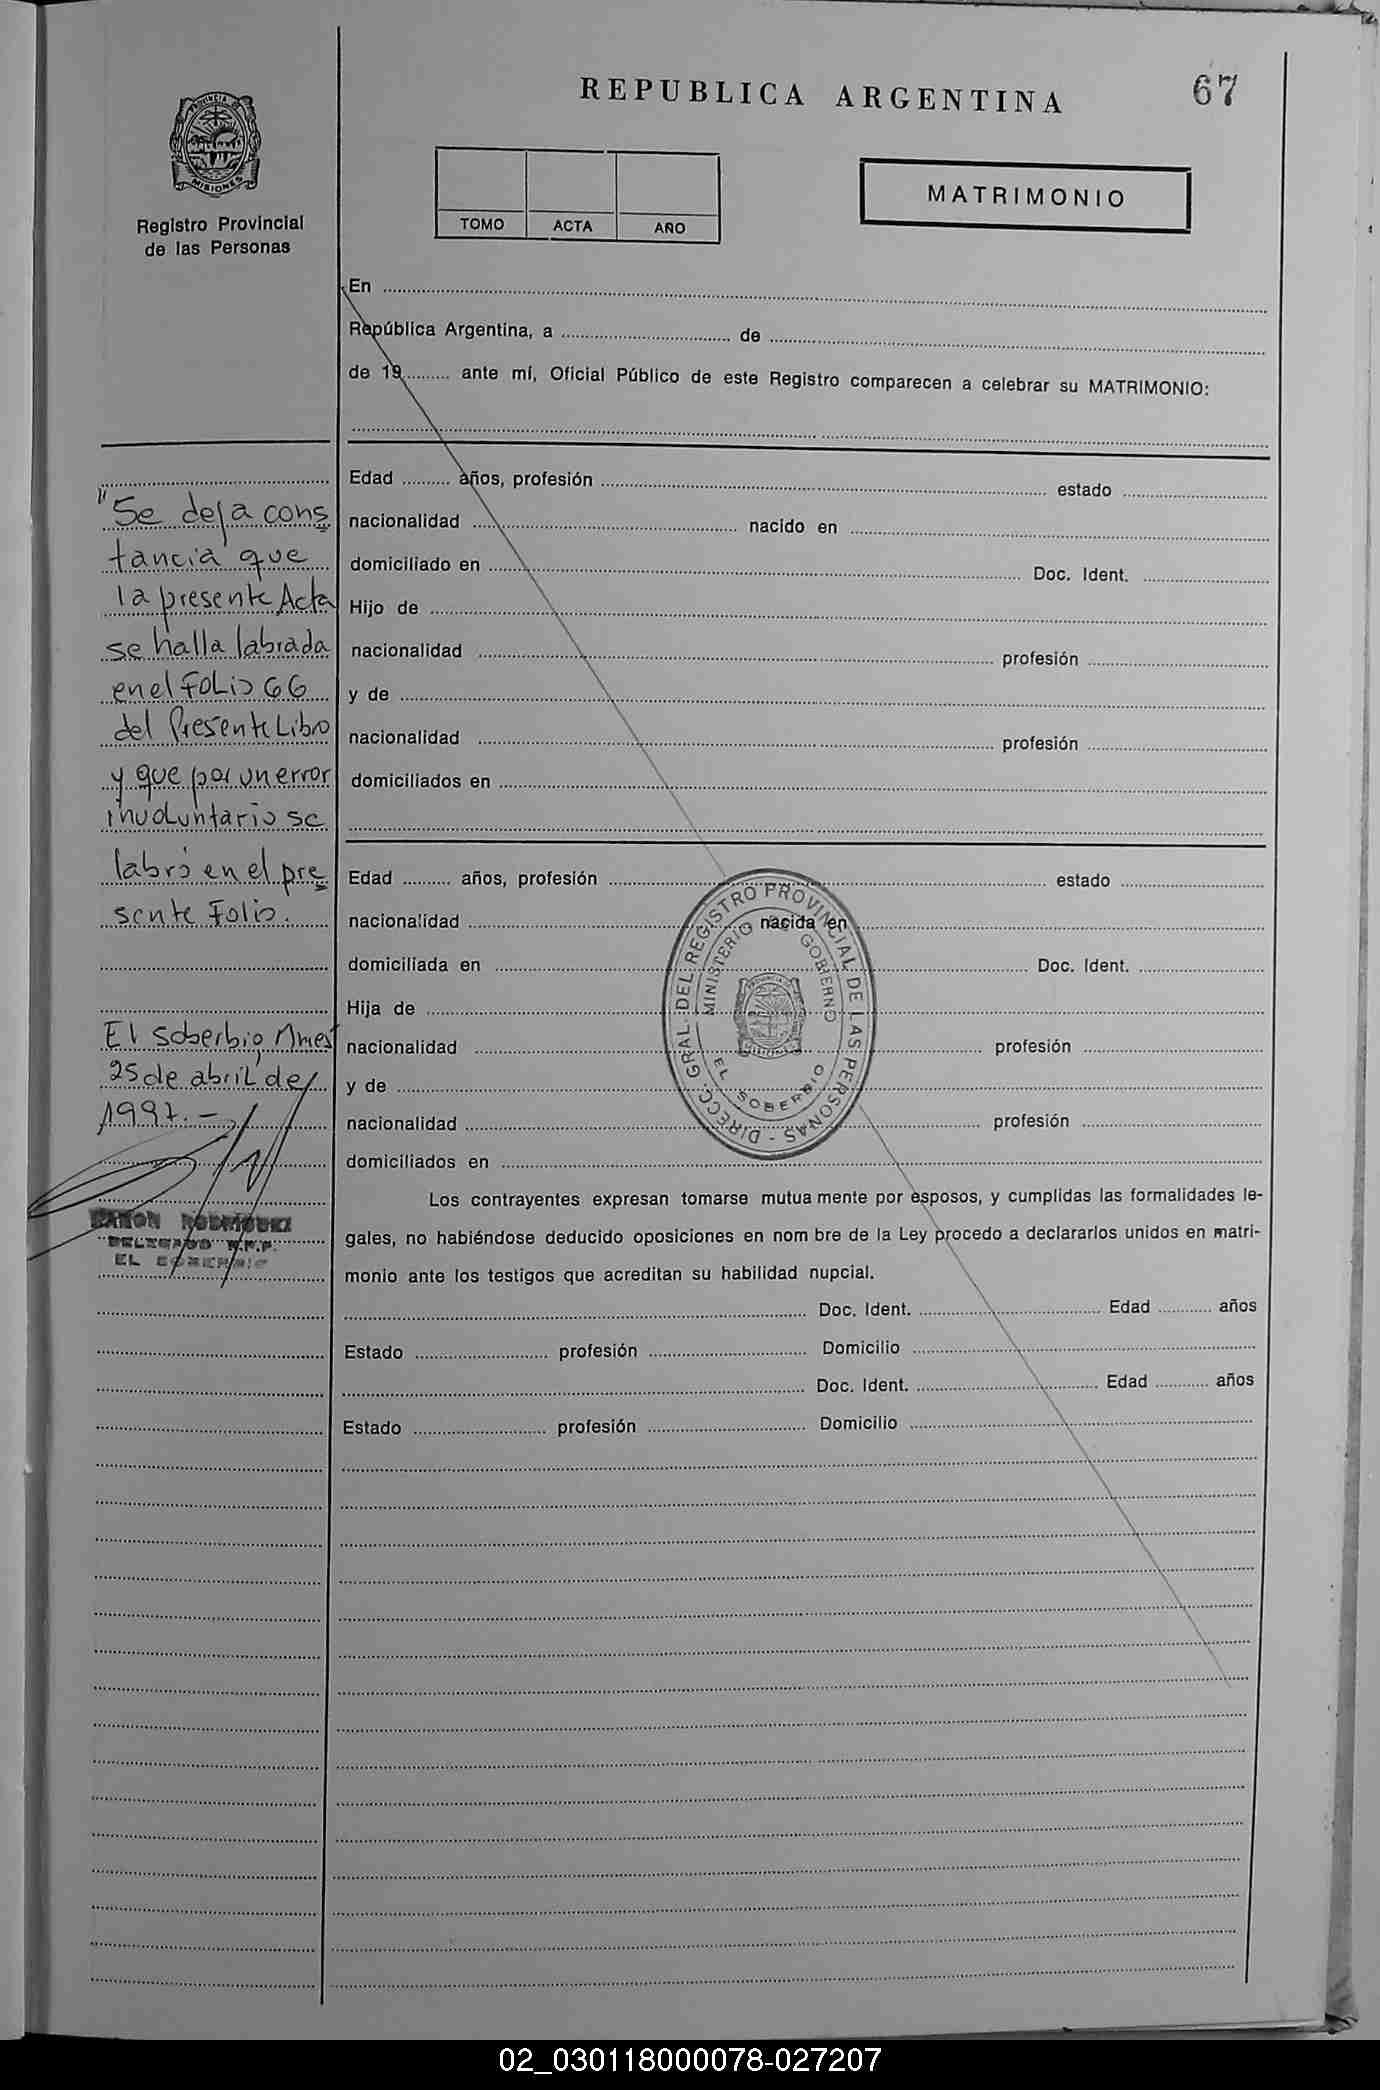 REPUBLICA ARGENTINA
67
PROVINCIA DE
MISIONES
Registro Provincial
de las Personas
TOMO ACTA AÑO
MATRIMONIO
En
República Argentina, a de
de 19 ante mí, Oficial Público de este Registro comparecen a celebrar su MATRIMONIO:
Edad años, profesión estado
nacionalidad nacido en
domiciliado en Doc. Ident.
Hijo de
nacionalidad profesión
y de
nacionalidad profesión
domiciliados en
"Se deja cons
tancia que
la presente Acta
se halla labrada
en el FOLio 66
del Presente Libro
y que por un error
involuntario se
labró en el pre
sente Folio.
El Soberbio, Mnes
25 de abril de
1997.-
RAMON RODRIGUEZ
DELEGADO R.P.P.
EL SOBERBIO
Edad años, profesión estado
nacionalidad nacida en
domiciliada en Doc. Ident.
Hija de
nacionalidad profesión
y de
nacionalidad profesión
domiciliados en
DIRECC. GRAL. DEL REGISTRO PROVINCIAL DE LAS PERSONAS -
MINISTERIO DE GOBIERNO
EL SOBERBIO
Los contrayentes expresan tomarse mutua mente por esposos, y cumplidas las formalidades le-
gales, no habiéndose deducido oposiciones en nom bre de la Ley procedo a declararlos unidos en matri-
monio ante los testigos que acreditan su habilidad nupcial.
Doc. Ident. Edad años
Estado profesión Domicilio
Doc. Ident. Edad años
Estado profesión Domicilio
02_030118000078-027207